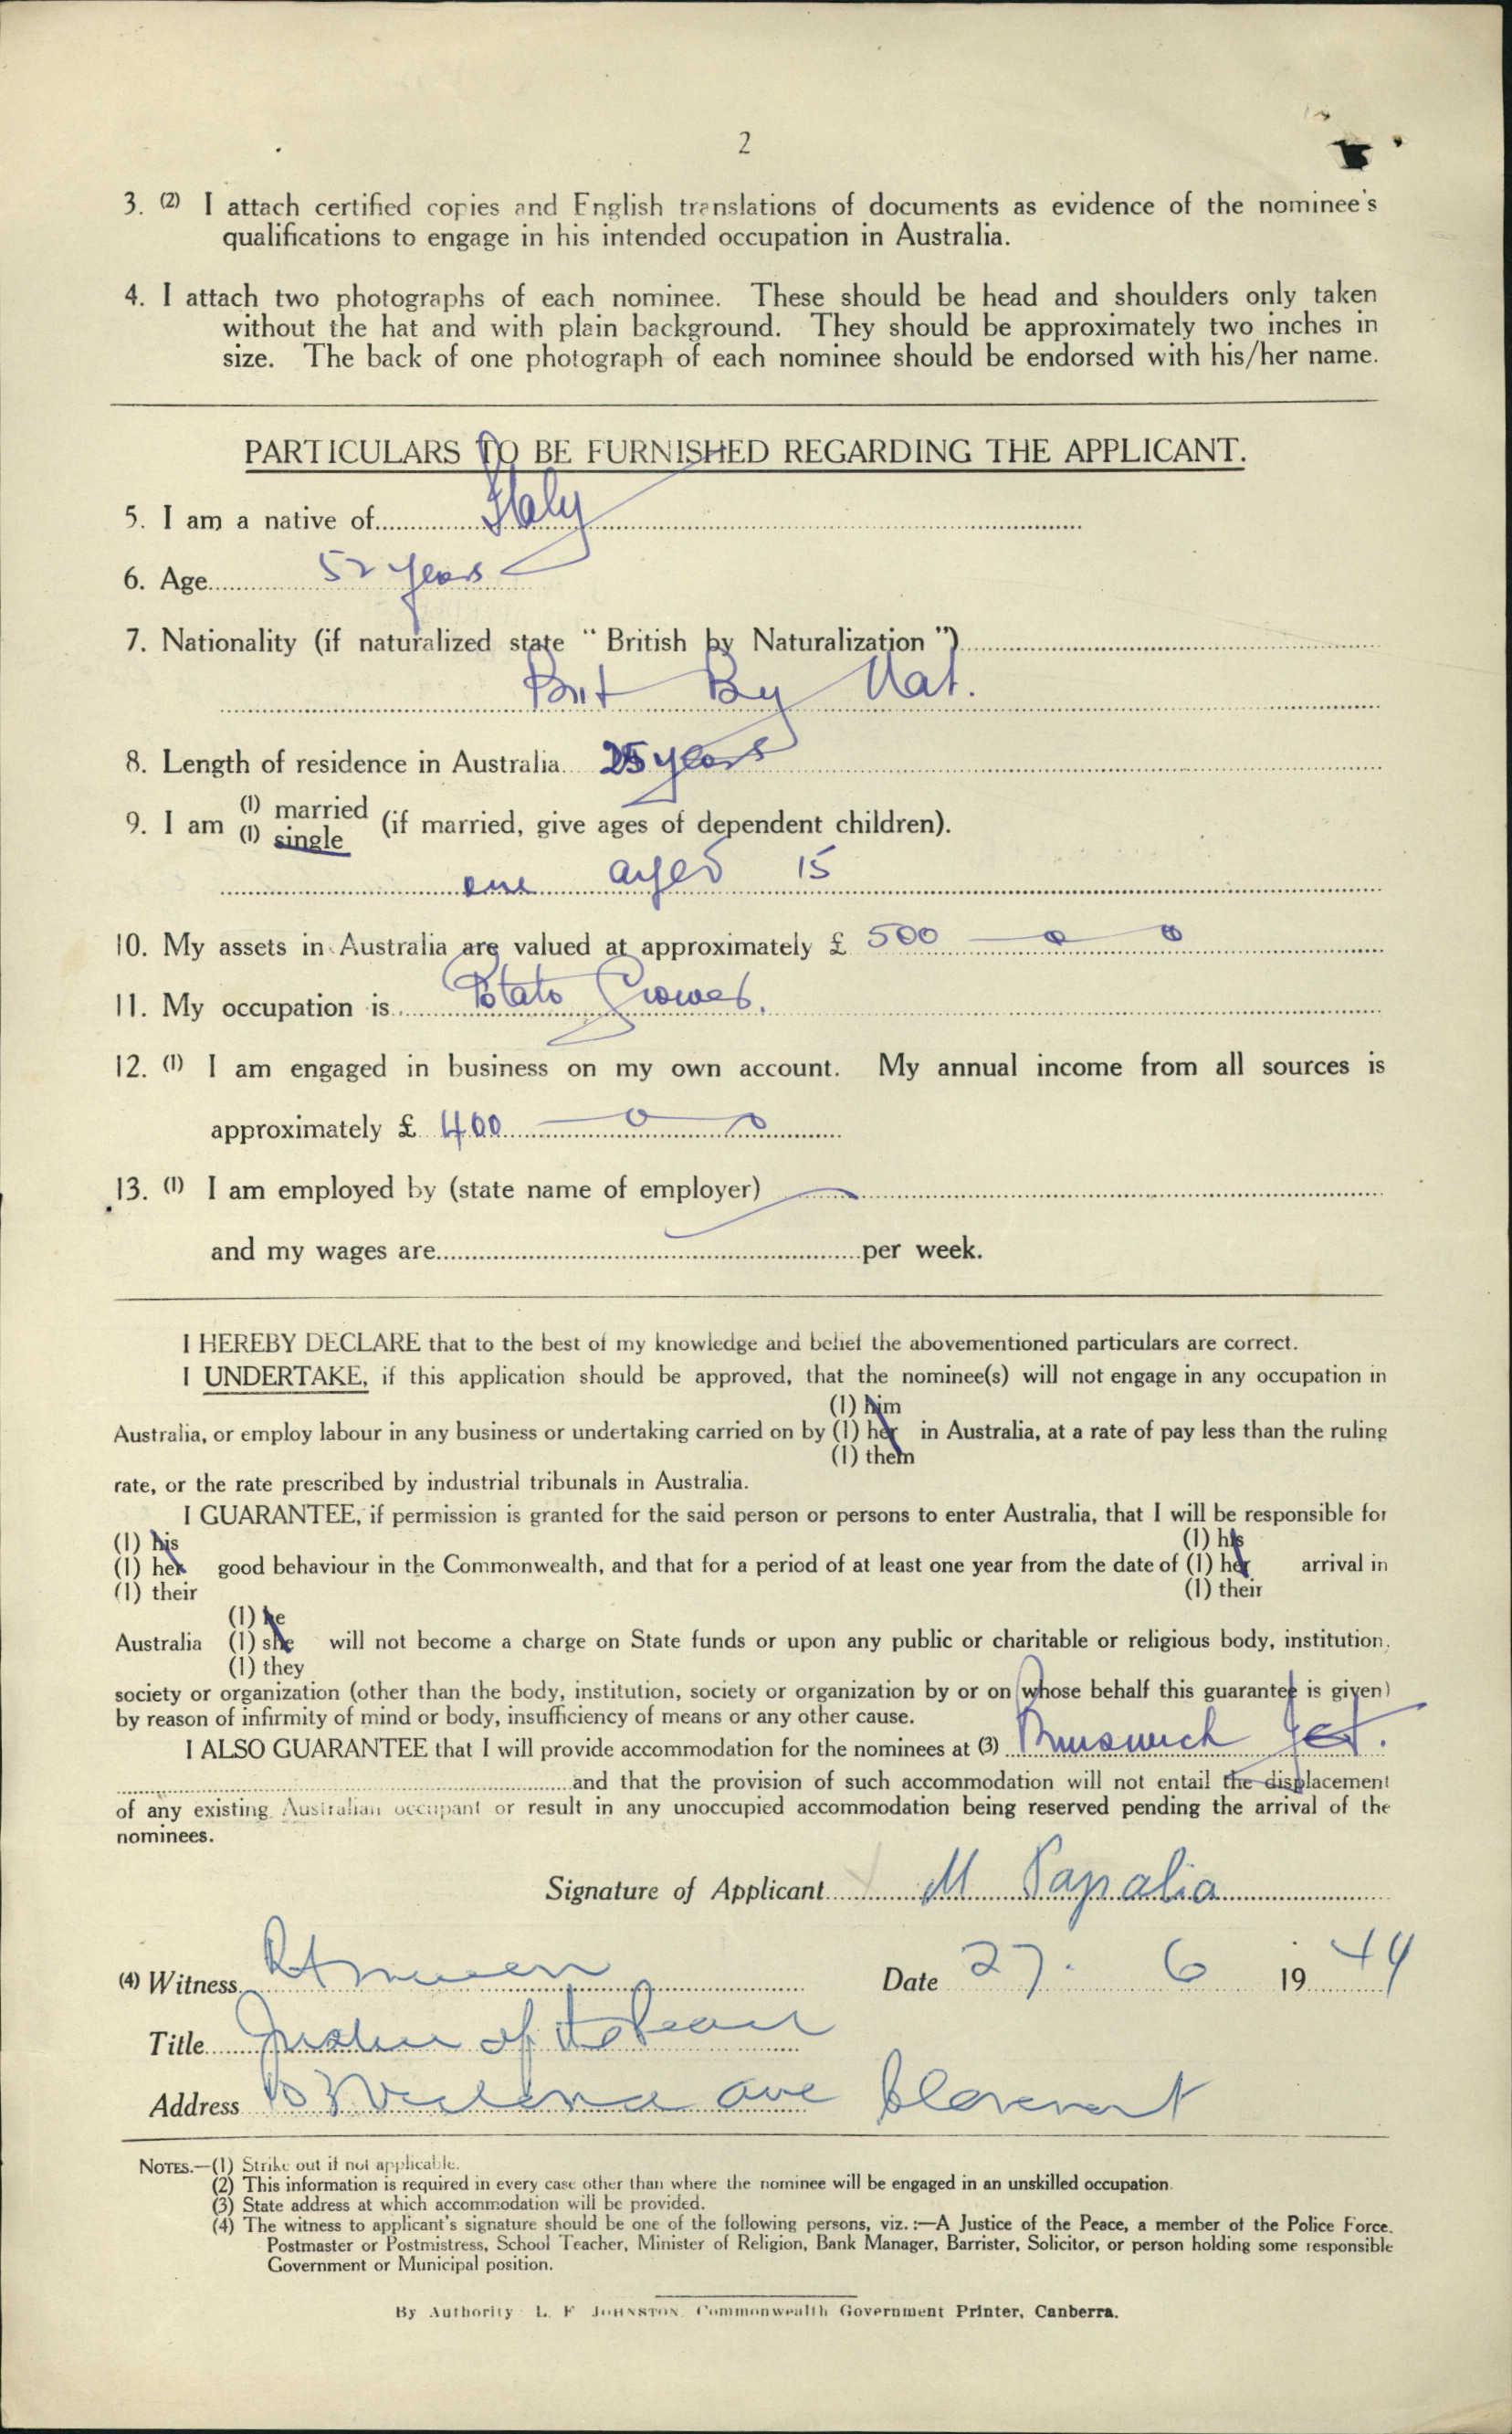 2
3. (2) I attach certified copies and English translations of documents as evidence of the nominee's
qualifications to engage in his intended occupation in Australia.
4. I attach two photographs of each nominee. These should be head and shoulders only taken
without the hat and with plain background. They should be approximately two inches in
size. The back of one photograph of each nominee should be endorsed with his/her name.
PARTICULARS TO BE FURNISHED REGARDING THE APPLICANT.
5. I am a native of Italy
6. Age 52 years
7. Nationality (if naturalized state "British by Naturalization")
Brit By Nat.
8. Length of residence in Australia 25 years
9. I am (1) married (1) single (if married, give ages of dependent children).
one aged 15
10. My assets in Australia are valued at approximately £ 500 — o — o
11. My occupation is Potato Grower.
12. (1) I am engaged in business on my own account. My annual income from all sources is
approximately £ 400 — o — o
13. (1) I am employed by (state name of employer) —
and my wages are per week.
I HEREBY DECLARE that to the best of my knowledge and belief the abovementioned particulars are correct.
I UNDERTAKE, if this application should be approved, that the nominee(s) will not engage in any occupation in
(1) him
Australia, or employ labour in any business or undertaking carried on by (1) her in Australia, at a rate of pay less than the ruling
(1) them
rate, or the rate prescribed by industrial tribunals in Australia.
I GUARANTEE, if permission is granted for the said person or persons to enter Australia, that I will be responsible for
(1) his (1) his
(1) her good behaviour in the Commonwealth, and that for a period of at least one year from the date of (1) her arrival in
(1) their (1) their
(1) he
Australia (1) she will not become a charge on State funds or upon any public or charitable or religious body, institution,
(1) they
society or organization (other than the body, institution, society or organization by or on whose behalf this guarantee is given)
by reason of infirmity of mind or body, insufficiency of means or any other cause.
I ALSO GUARANTEE that I will provide accommodation for the nominees at (3) Brunswick Jct.
and that the provision of such accommodation will not entail the displacement
of any existing Australian occupant or result in any unoccupied accommodation being reserved pending the arrival of the
nominees.
Signature of Applicant M Papalia
(4) Witness Date 27. 6 19 49
Title Justice of the Peace
Address ave Claremont
NOTES.—(1) Strike out if not applicable.
(2) This information is required in every case other than where the nominee will be engaged in an unskilled occupation.
(3) State address at which accommodation will be provided.
(4) The witness to applicant's signature should be one of the following persons, viz. :—A Justice of the Peace, a member of the Police Force.
Postmaster or Postmistress, School Teacher, Minister of Religion, Bank Manager, Barrister, Solicitor, or person holding some responsible
Government or Municipal position.
By Authority L. F. JOHNSTON, Commonwealth Government Printer, Canberra.